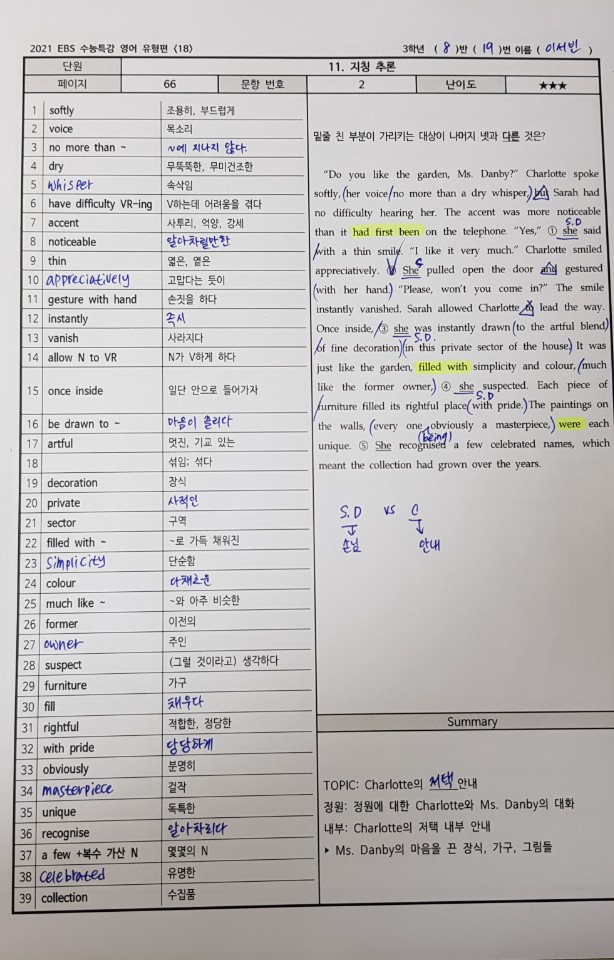 2021 EBS 수능특강 영어 유형편 〈18〉 3학년 ( 8 )반 ( 19 )번 이름 ( 이서빈 )
단원 11. 지칭 추론
페이지 66 문항 번호 2 난이도 ★★★
1 softly 조용히, 부드럽게
2 voice 목소리
3 no more than ~ ~에 지나지 않다.
4 dry 무뚝뚝한, 무미건조한
5 whisper 속삭임
6 have difficulty VR-ing V하는데 어려움을 겪다
7 accent 사투리, 억양, 강세
8 noticeable 알아차릴만한
9 thin 엷은, 옅은
10 appreciatively 고맙다는 듯이
11 gesture with hand 손짓을 하다
12 instantly 즉시
13 vanish 사라지다
14 allow N to VR N가 V하게 하다
15 once inside 일단 안으로 들어가자
16 be drawn to ~ 마음이 쏠리다
17 artful 멋진, 기교 있는
18 섞임; 섞다
19 decoration 장식
20 private 사적인
21 sector 구역
22 filled with ~ ~로 가득 채워진
23 simplicity 단순함
24 colour 다채로운
25 much like ~ ~와 아주 비슷한
26 former 이전의
27 owner 주인
28 suspect (그럴 것이라고) 생각하다
29 furniture 가구
30 fill 채우다
31 rightful 적합한, 정당한
32 with pride 당당하게
33 obviously 분명히
34 masterpiece 걸작
35 unique 독특한
36 recognise 알아차리다
37 a few +복수 가산 N 몇몇의 N
38 celebrated 유명한
39 collection 수집품
밑줄 친 부분이 가리키는 대상이 나머지 넷과 다른 것은?
"Do you like the garden, Ms. Danby?" Charlotte spoke
softly, (her voice/no more than a dry whisper,) but Sarah had
no difficulty hearing her. The accent was more noticeable
S.D
than it had first been on the telephone. "Yes," ① she said
with a thin smile. "I like it very much." Charlotte smiled
C
appreciatively. ② She pulled open the door and gestured
(with her hand.) "Please, won't you come in?" The smile
instantly vanished. Sarah allowed Charlotte to lead the way.
Once inside, ③ she was instantly drawn (to the artful blend)
S.D
(of fine decoration)(in this private sector of the house.) It was
just like the garden, filled with simplicity and colour, (much
like the former owner,) ④ she suspected. Each piece of
S.D
furniture filled its rightful place (with pride.) The paintings on
the walls, (every one obviously a masterpiece,) were each
(being)
unique. ⑤ She recognised a few celebrated names, which
meant the collection had grown over the years.
S.D vs C
손님 안내
Summary
TOPIC: Charlotte의 저택 안내
정원: 정원에 대한 Charlotte와 Ms. Danby의 대화
내부: Charlotte의 저택 내부 안내
▸ Ms. Danby의 마음을 끈 장식, 가구, 그림들